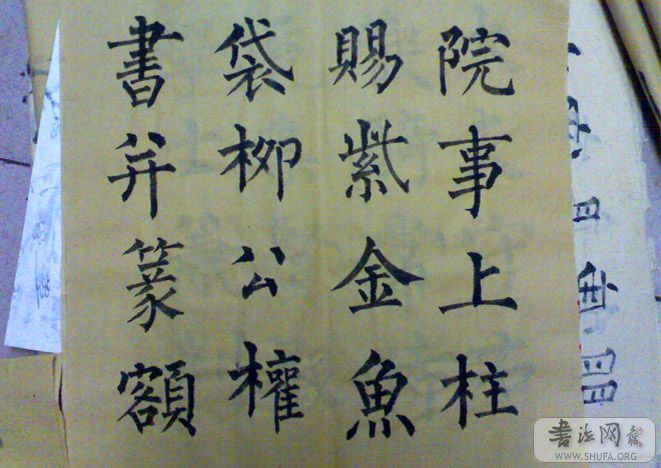 院事上柱
賜紫金魚
袋柳公權
書并篆額
書法网
WWW.SHUFA.ORG